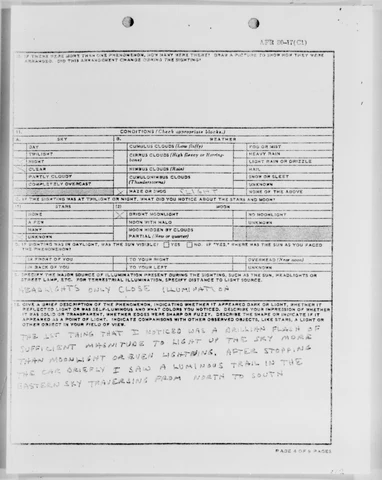 AFR 80-17(C1)
IF THERE WERE MORE THAN ONE PHENOMENON, HOW MANY WERE THERE? DRAW A PICTURE TO SHOW HOW THEY WERE
ARRANGED. DID THIS ARRANGEMENT CHANGE DURING THE SIGHTING?
11. CONDITIONS (Check appropriate blocks.)
A. SKY B. WEATHER
DAY CUMULUS CLOUDS (Low fluffy) FOG OR MIST
TWILIGHT CIRRUS CLOUDS (High fleecy or Herringbone) HEAVY RAIN
NIGHT LIGHT RAIN OR DRIZZLE
CLEAR NIMBUS CLOUDS (Rain) HAIL
PARTLY CLOUDY CUMULONIMBUS CLOUDS SNOW OR SLEET
COMPLETELY OVERCAST (Thunderstorms) UNKNOWN
X HAZE OR SMOG SLIGHT NONE OF THE ABOVE
C. IF THE SIGHTING WAS AT TWILIGHT OR NIGHT, WHAT DID YOU NOTICE ABOUT THE STARS AND MOON?
(1) STARS (2) MOON
NONE X BRIGHT MOONLIGHT NO MOONLIGHT
A FEW MOON WITH HALO UNKNOWN
MANY MOON HIDDEN BY CLOUDS
UNKNOWN PARTIAL (New or quarter)
D. IF SIGHTING WAS IN DAYLIGHT, WAS THE SUN VISIBLE? YES NO. IF "YES," WHERE WAS THE SUN AS YOU FACED
THE PHENOMENON?
IN FRONT OF YOU TO YOUR RIGHT OVERHEAD (Near noon)
IN BACK OF YOU TO YOUR LEFT UNKNOWN
SPECIFY THE MAJOR SOURCE OF ILLUMINATION PRESENT DURING THE SIGHTING, SUCH AS THE SUN, HEADLIGHTS OR
STREET LAMP, ETC. FOR TERRESTRIAL ILLUMINATION, SPECIFY DISTANCE TO LIGHT SOURCE.
HEADLIGHTS ONLY CLOSE ILLUMINATION
GIVE A BRIEF DESCRIPTION OF THE PHENOMENON, INDICATING WHETHER IT APPEARED DARK OR LIGHT, WHETHER IT
REFLECTED LIGHT OR WAS SELF-LUMINOUS AND WHAT COLORS YOU NOTICED. DESCRIBE YOUR IMPRESSION OF WHETHER
IT WAS SOLID OR TRANSPARENT, WHETHER EDGES WERE SHARP OR FUZZY. DESCRIBE THE SHAPE OR INDICATE IF IT
APPEARED AS A POINT OF LIGHT. INDICATE COMPARISONS WITH OTHER OBSERVED OBJECTS, LIKE STARS, A LIGHT OR
OTHER OBJECT IN YOUR FIELD OF VIEW.
THE 1ST THING THAT I NOTICED WAS A BRILLIAN FLASH OF
SUFFICIENT MAGNITUDE TO LIGHT UP THE SKY MORE
THAN MOONLIGHT OR EVEN LIGHTNING. AFTER STOPPING
THE CAR BRIEFLY I SAW A LUMINOUS TRAIL IN THE
EASTERN SKY TRAVERSING FROM NORTH TO SOUTH
PAGE 4 OF PAGES